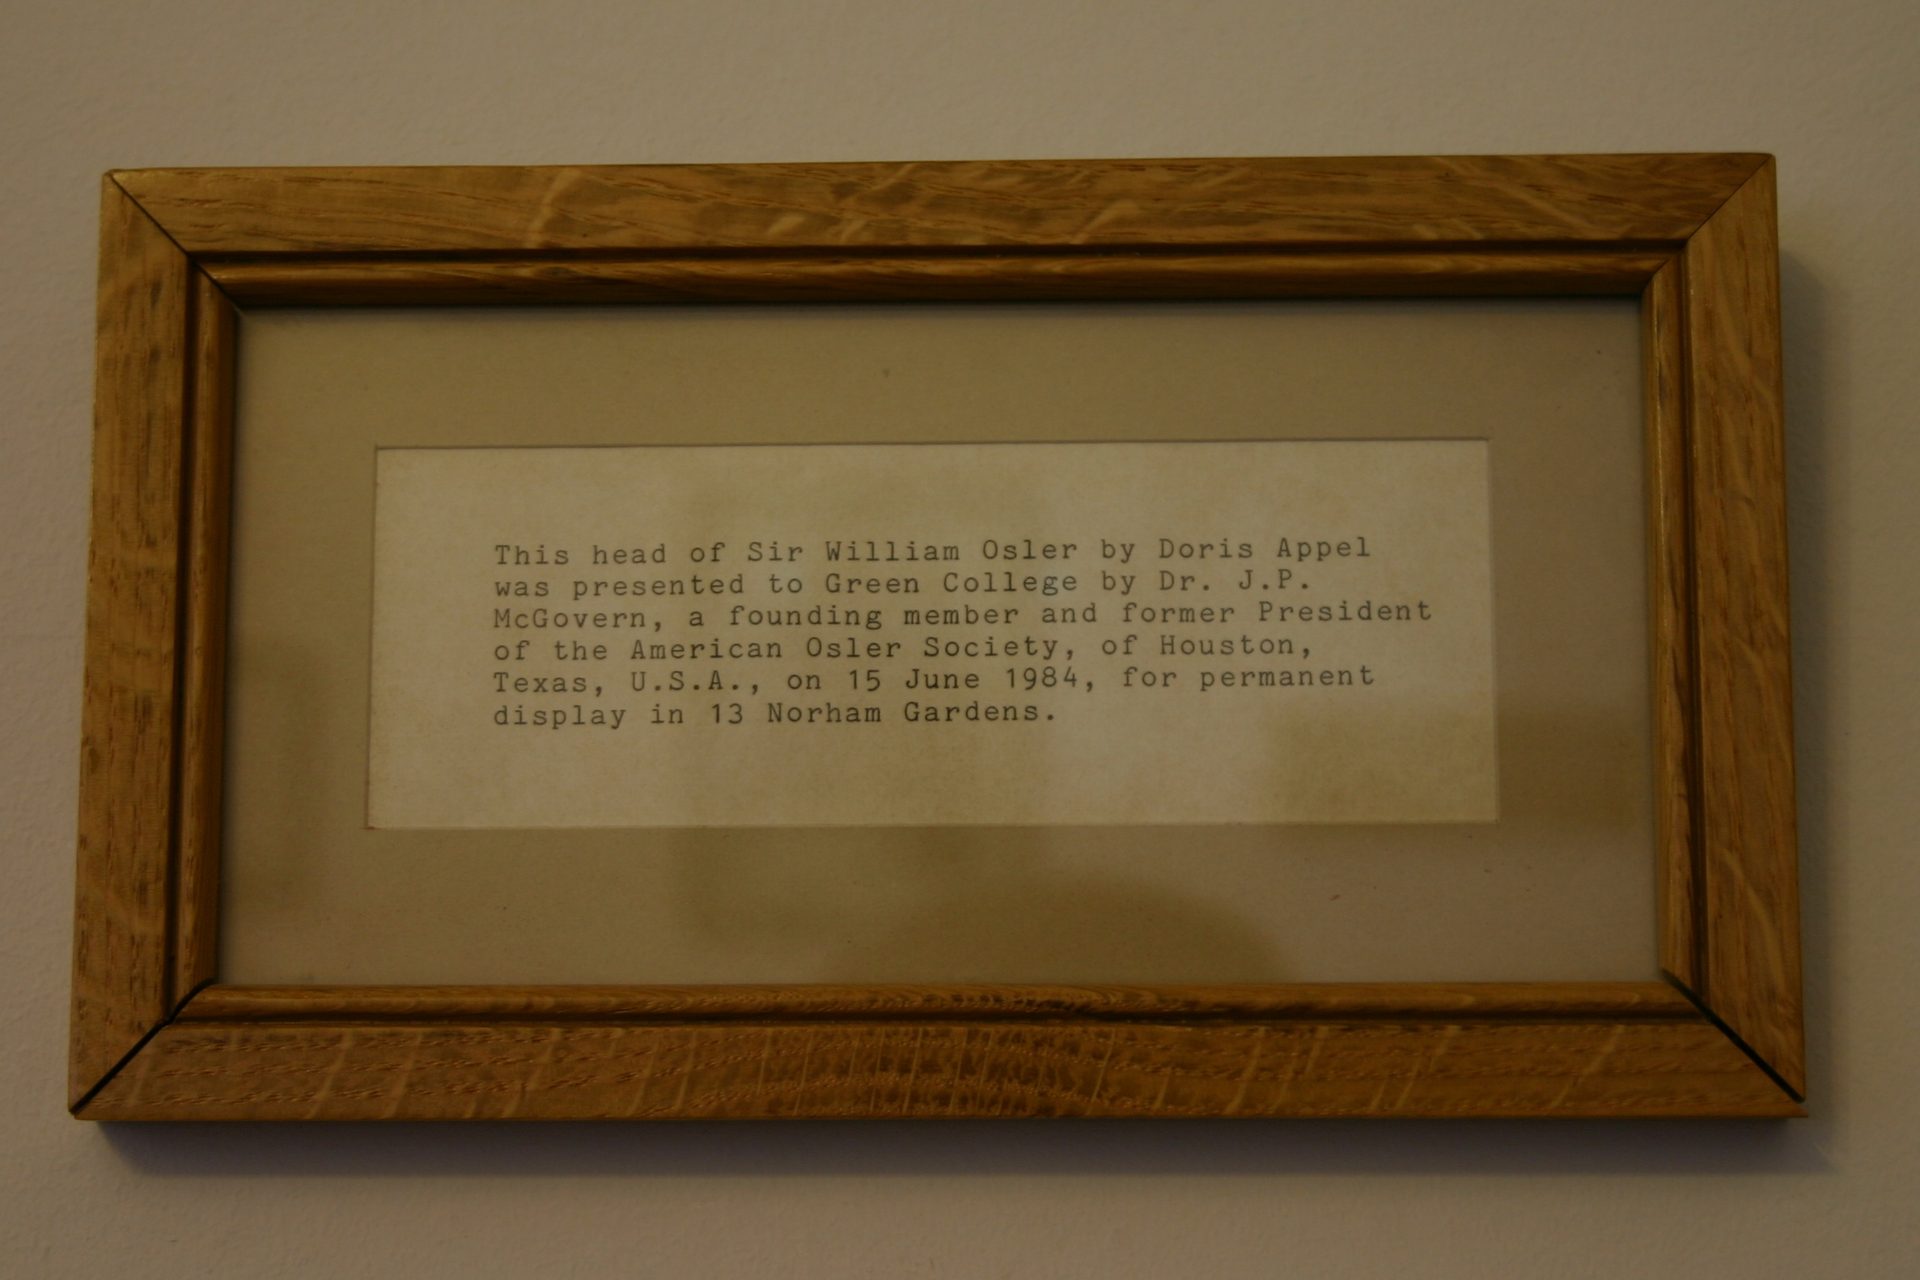 This head of Sir William Osler by Doris Appel
was presented to Green College by Dr. J.P.
McGovern, a founding member and former President
of the American Osler Society, of Houston,
Texas, U.S.A., on 15 June 1984, for permanent
display in 13 Norham Gardens.